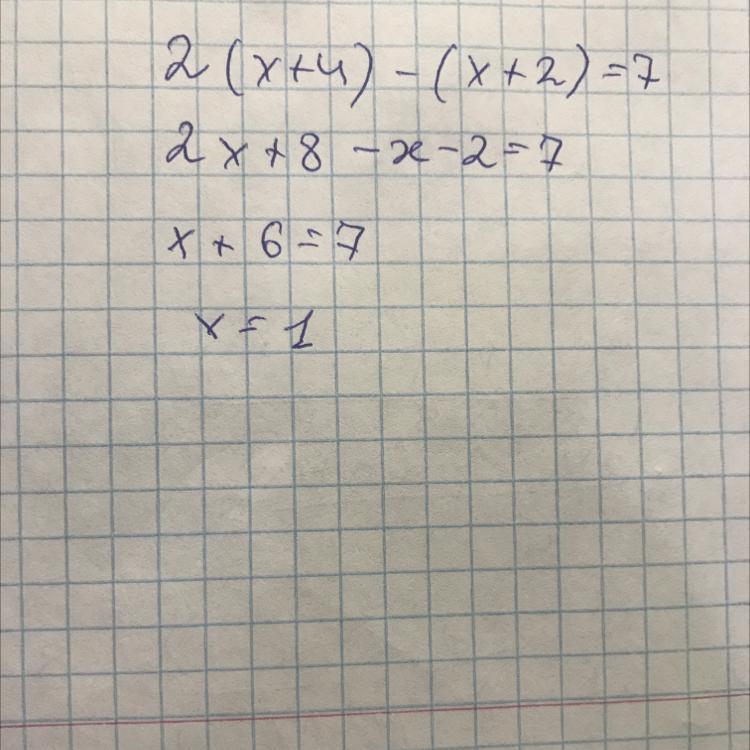 2(x+4)-(x+2)=7
2x+8-x-2=7
x+6=7
x=1